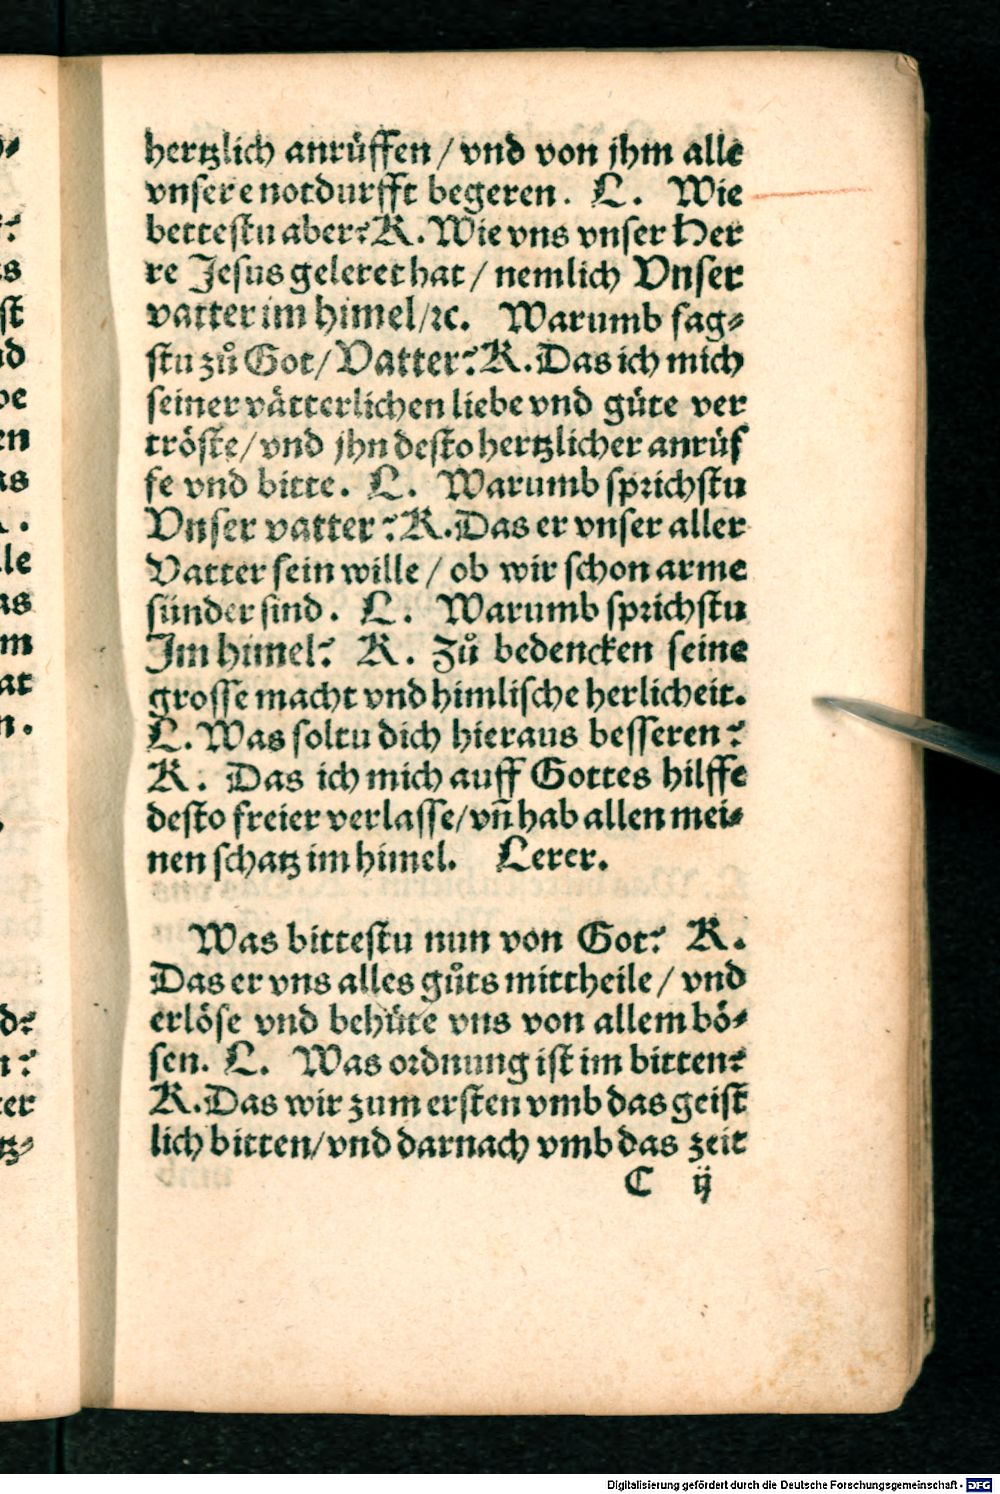 hertzlich anrüffen / vnd von jhm alle
vnsere notdurfft begeren. L. Wie
bettestu aber? K. Wie vns vnser Her
re Jesus geleret hat / nemlich Vnser
vatter im himel / ꝛc. Warumb sag⸗
stu zů Got / Vatter? K. Das ich mich
seiner våtterlichen liebe vnd güte ver
tröste / vnd jhn desto hertzlicher anrüf
fe vnd bitte. L. Warumb sprichstu
Vnser vatter? K. Das er vnser aller
Vatter sein wille / ob wir schon arme
sünder sind. L. Warumb sprichstu
Im himel? K. Zů bedencken seine
grosse macht vnd himlische herlicheit.
L. Was soltu dich hieraus besseren?
K. Das ich mich auff Gottes hilffe
desto freier verlasse / vñ hab allen mei⸗
nen schatz im himel. Lerer.
Was bittestu nun von Got? K.
Das er vns alles gůts mittheile / vnd
erlöse vnd behüte vns von allem bö⸗
sen. L. Was ordnung ist im bitten?
K. Das wir zum ersten vmb das geist
lich bitten / vnd darnach vmb das zeit
C ij
Digitalisierung gefördert durch die Deutsche Forschungsgemeinschaft - DFG